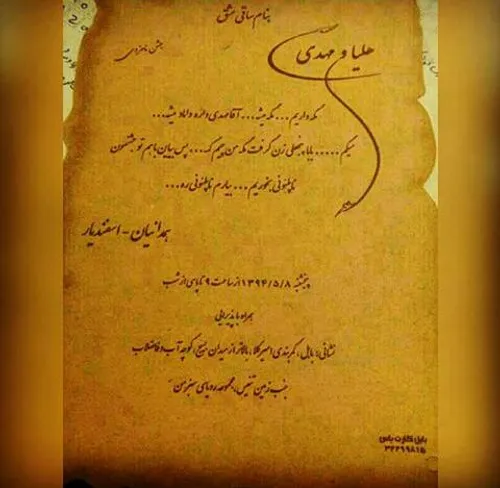 بنام ساقی عشق
جشن نامزدی
هلیا و مهدی
مگه داریم... مگه میشه... آقا مهدی داره داماد میشه...
میگم..... بابا پنجعلی زن گرفت مگه من چیم کمه... پس بیاین باهم تو جشنمون
ناپلئونی بخوریم... بیارم ناپلئونی ره...
همدانیان - اسفندیار
پنجشنبه ۱۳۹۴/۵/۸ از ساعت ۹ تا پاسی از شب
همراه با پذیرایی
نشانی: بابل، کمربندی امیرکلا، بالاتر از میدان بسیج، کوچه آب و فاضلاب
جنب زمین تنیس، مجموعه رویای سبز من
بابل نظارت یاس
۳۲۲۹۹۸۱۵